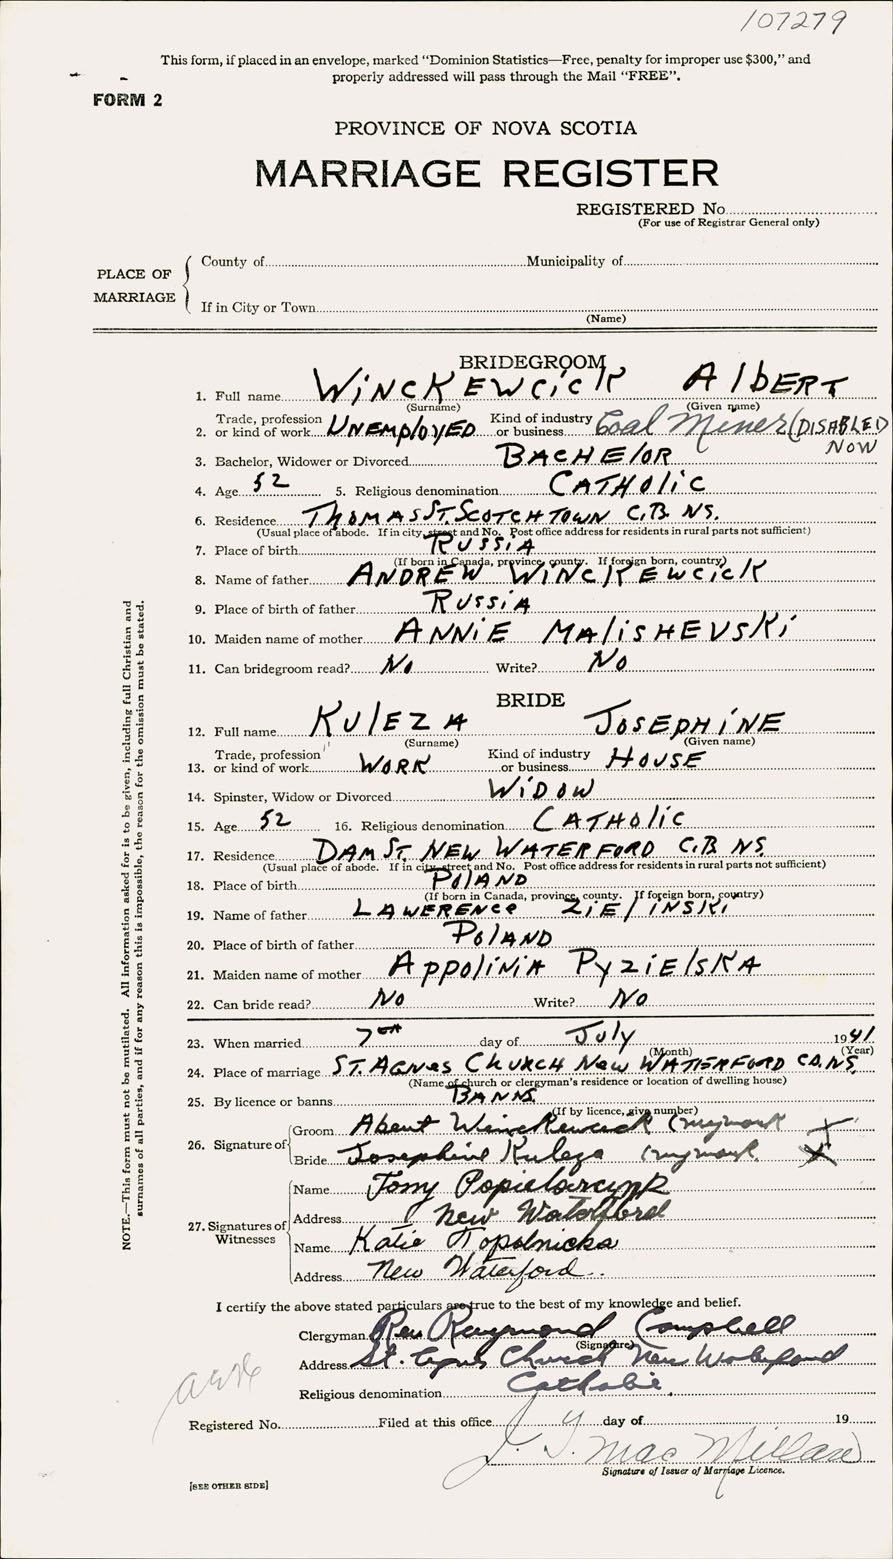 107279
This form, if placed in an envelope, marked "Dominion Statistics—Free, penalty for improper use $300," and
properly addressed will pass through the Mail "FREE".
FORM 2
PROVINCE OF NOVA SCOTIA
MARRIAGE REGISTER
REGISTERED No
(For use of Registrar General only)
PLACE OF MARRIAGE
County of Municipality of
If in City or Town
(Name)
BRIDEGROOM
1. Full name WINCKEWCICK AlbERT
(Surname) (Given name)
2. Trade, profession or kind of work UNEMPloYED Kind of industry or business Coal Miner (DISABLED NOW
3. Bachelor, Widower or Divorced BACHElOR
4. Age 52 5. Religious denomination CATHOlIC
6. Residence THOMAS ST. SCOTCHTOWN C.B. NS.
(Usual place of abode. If in city, street and No. Post office address for residents in rural parts not sufficient)
7. Place of birth RUSSIA
(If born in Canada, province, county. If foreign born, country)
8. Name of father ANDREW WINCKEWCICK
9. Place of birth of father RUSSIA
10. Maiden name of mother ANNIE MAlISHEVSKI
11. Can bridegroom read? No Write? No
BRIDE
12. Full name KUlEZA JOSEPHINE
(Surname) (Given name)
13. Trade, profession or kind of work WORK Kind of industry or business HOUSE
14. Spinster, Widow or Divorced WIDOW
15. Age 52 16. Religious denomination CATHOlIC
17. Residence DAM ST. NEW WATERFORD C.B. NS.
(Usual place of abode. If in city, street and No. Post office address for residents in rural parts not sufficient)
18. Place of birth POlAND
(If born in Canada, province, county. If foreign born, country)
19. Name of father LAWERENCE ZIElINSKI
20. Place of birth of father POlAND
21. Maiden name of mother APPOlINIA PYZIElSKA
22. Can bride read? No Write? No
23. When married 7th day of July 1941
(Month) (Year)
24. Place of marriage ST. AGNES CHURCH NEW WATTERFORD CB. NS.
(Name of church or clergyman's residence or location of dwelling house)
25. By licence or banns BANNS
(If by licence, give number)
26. Signature of
Groom Abent Winckewcick (my mark X
Bride Josephine Kuleza (my mark X
27. Signatures of Witnesses
Name Tony Popielarczyk
Address New Waterford
Name Katie Topolnicka
Address New Waterford
I certify the above stated particulars are true to the best of my knowledge and belief.
Clergyman Rev Raymond Campbell
(Signature)
Address St. Agnes Church New Waterford
Religious denomination Catholic.
Registered No. Filed at this office day of 19
J. J. MacMillan
Signature of Issuer of Marriage Licence.
[SEE OTHER SIDE]
NOTE.—This form must not be mutilated. All information asked for is to be given, including full Christian and
surnames of all parties, and if for any reason this is impossible, the reason for the omission must be stated.